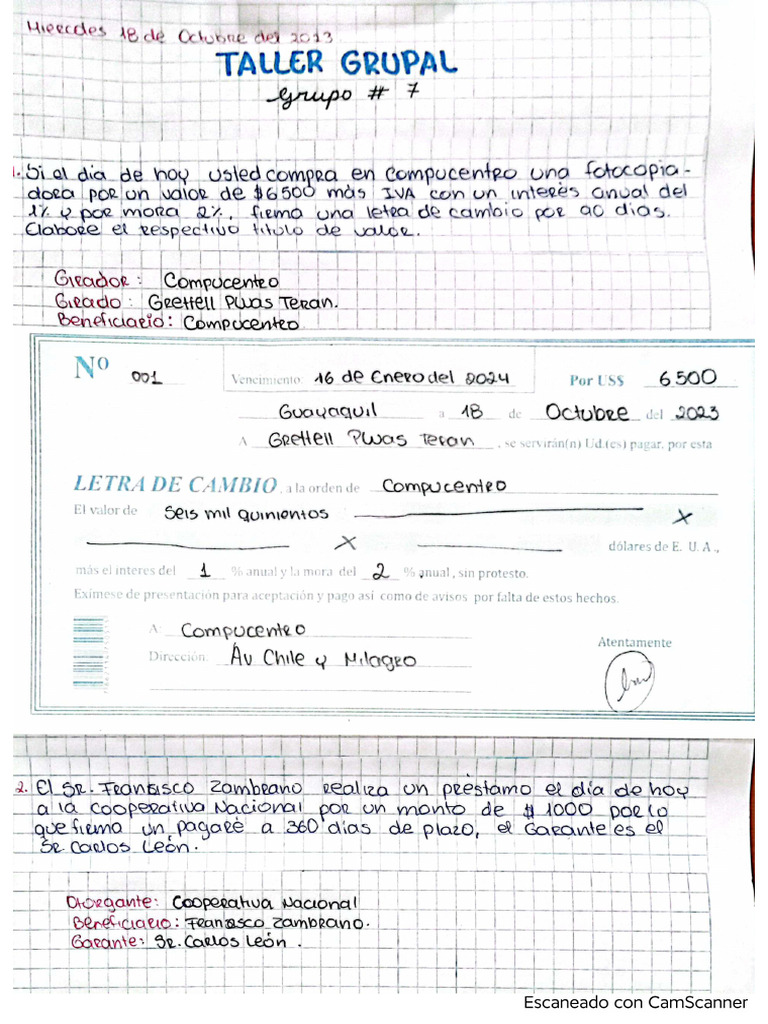 Miercoles 18 de Octubre del 2023.
TALLER GRUPAL
Grupo # 7
1. Si al dia de hoy usted compra en compucentro una fotocopia-
dora por un valor de $6500 más IVA con un interés anual del
1% y por mora 2%, firma una letra de cambio por 90 dias.
Elabore el respectivo titulo de valor.
Girador: Compucentro
Girado: Grettell Pluas Teran.
Beneficiario: Compucentro
Nº 001 Vencimiento 16 de Enero del 2024 Por US$ 6.500
Guayaquil a 18 de Octubre del 2023
A Grettell Pluas Teran, se servirán(n) Ud.(es) pagar, por esta
LETRA DE CAMBIO, a la orden de Compucentro
El valor de seis mil quinientos x
x dólares de E. U. A.,
más el interes del 1 % anual y la mora del 2 % anual, sin protesto.
Exímese de presentación para aceptación y pago así como de avisos por falta de estos hechos.
A: Compucentro
Atentamente
Dirección: Áv Chile y Milagro
2. El Sr. Francisco Zambrano realiza un préstamo el día de hoy
a la cooperativa Nacional por un monto de $ 1000 por lo
que firma un pagaré a 360 dias de plazo, el Garante es el
Sr. Carlos León.
Otorgante: Cooperativa Nacional
Beneficiario: Francisco Zambrano.
Garante: Sr. Carlos León.
Escaneado con CamScanner